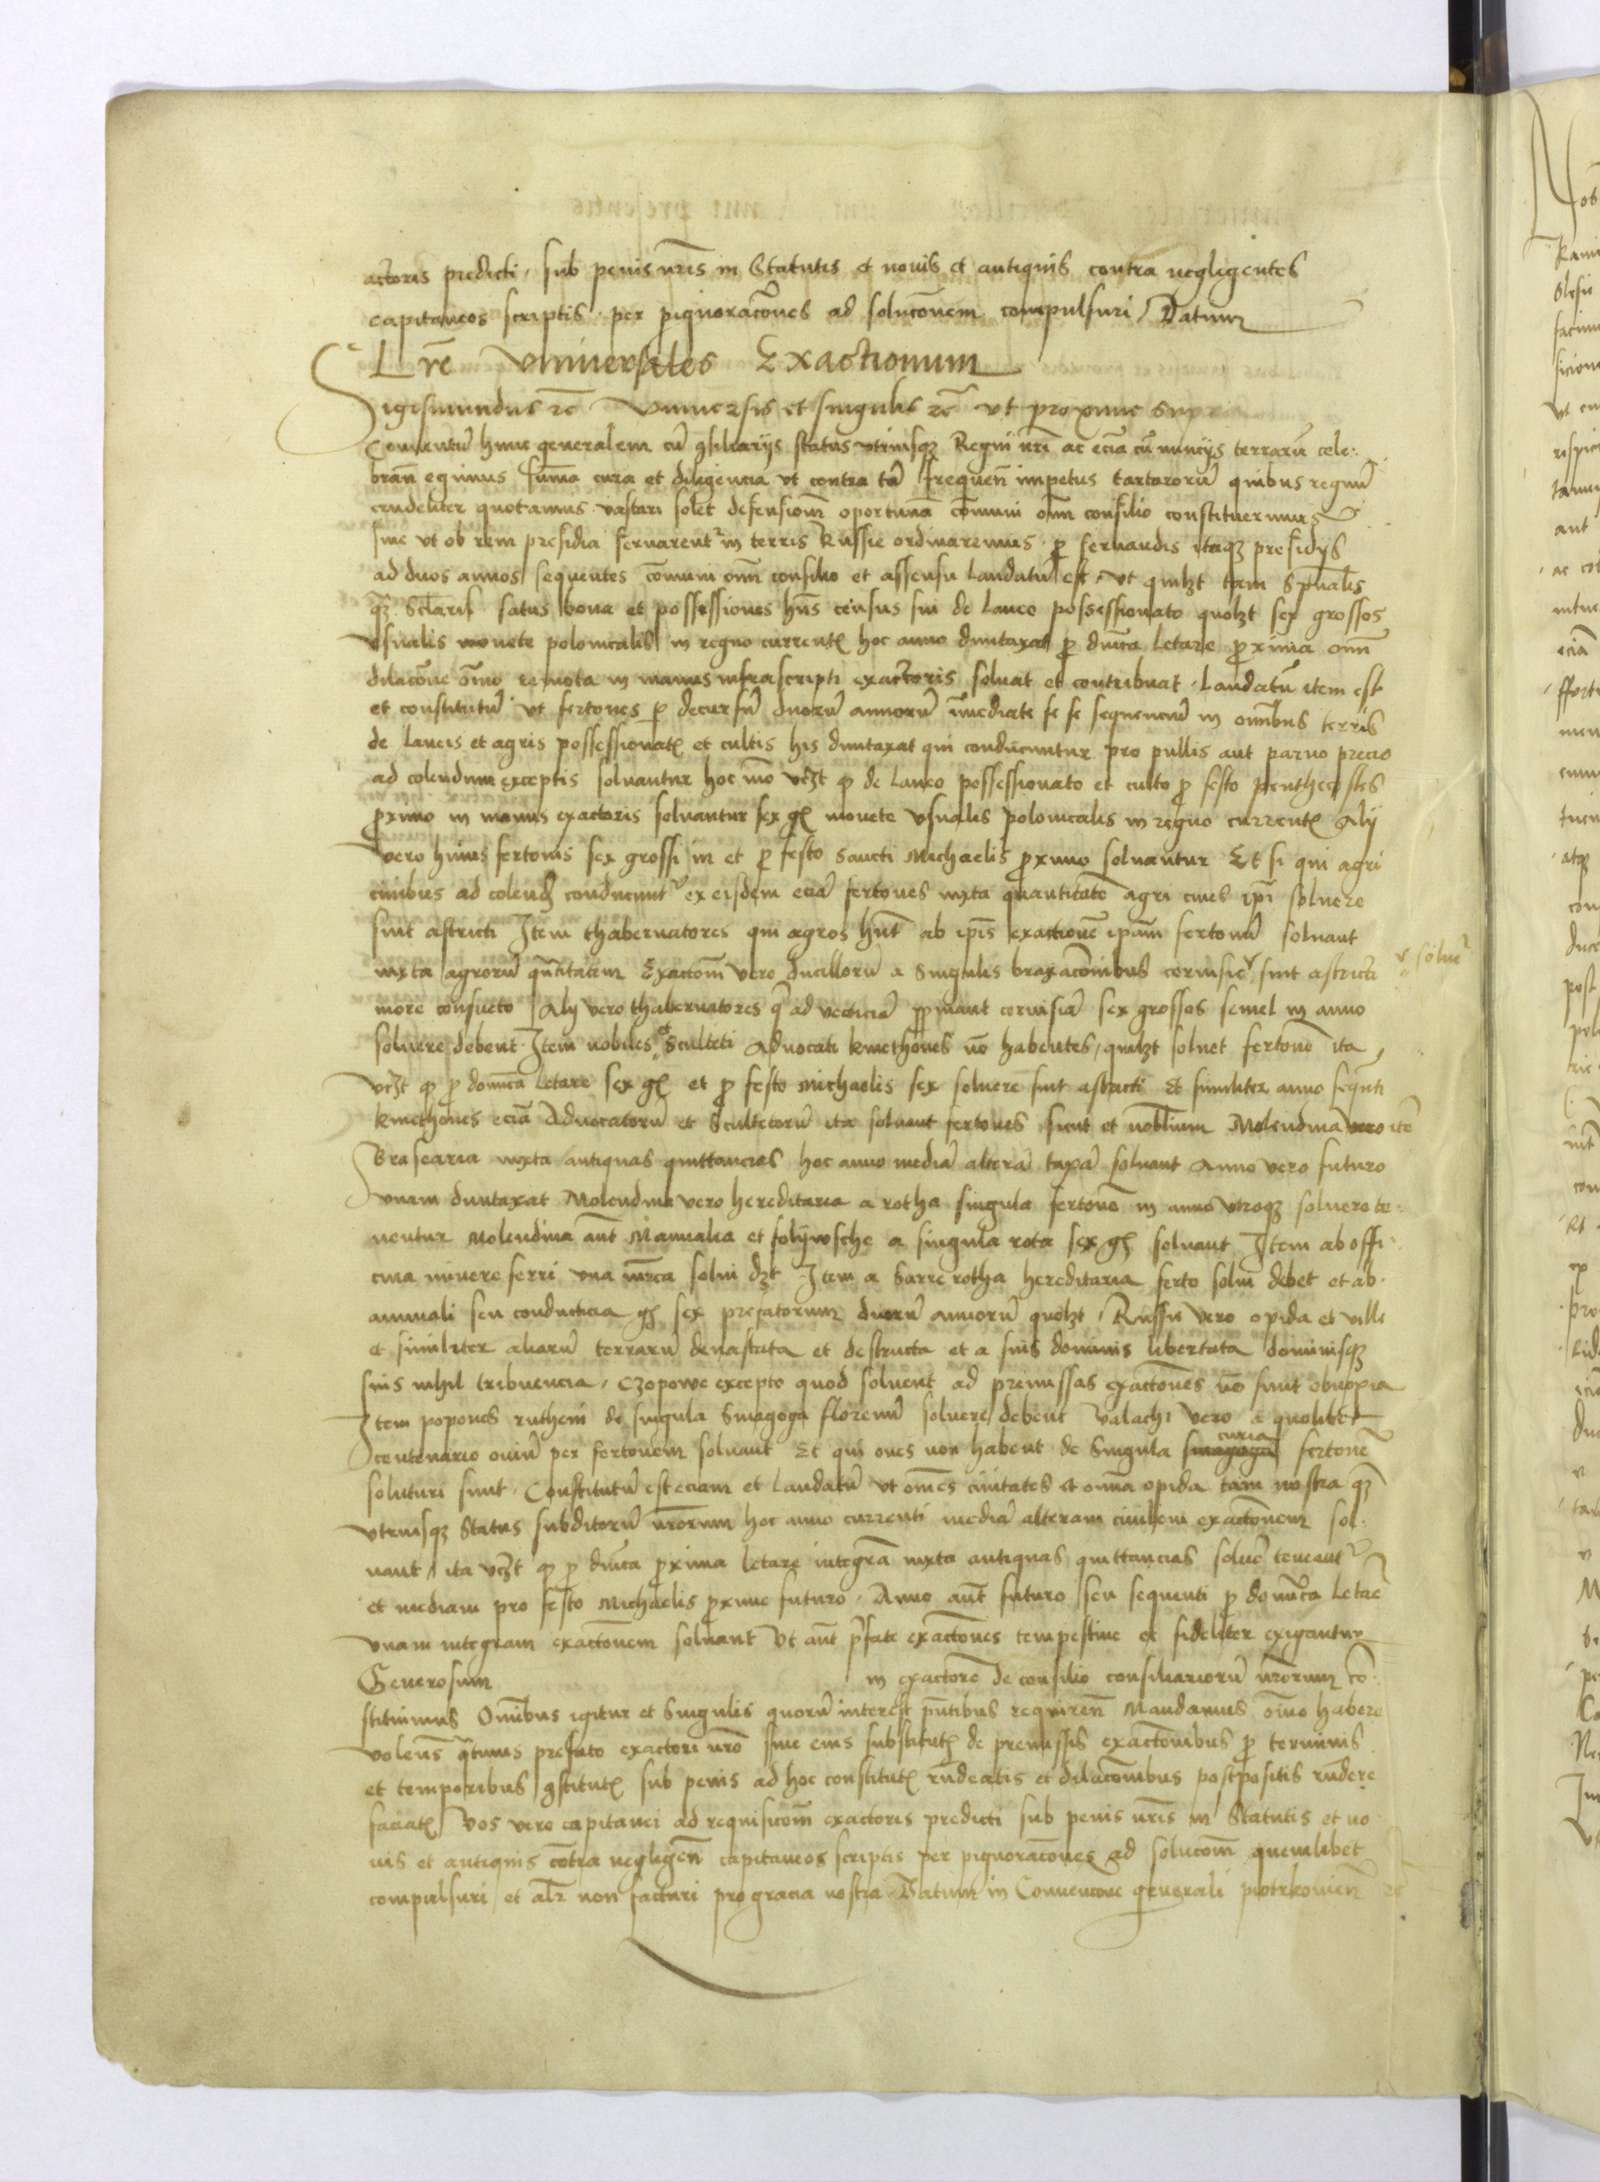 actoris predicti, sub penis nr̄is in Statutis et novis et antiquis contra negligentes
capitaneos scriptis per pignoracōnes ad solucōnem compulsuri / Datum
Lr̄e Vniversales Exactionum
Sigismundus rc̄ Vniversis et singulis rc̄ vt proxime supra
Conventū hunc generalem cū ꝯsiliarijs status vtriusqȝ Regni nr̄i ac eciā cū nuncijs terrarū cele-
bran̄ egimus sum̄a cura et diligencia vt contra tā frequen̄ impetus tartarorū quibus regnū
crudeliter quotannis vastari solet defensionē oportunā com̄uni om̄ consilio constitueremus
sive vt ob rem presidia servarent~ in terris Russie ordinaremus ꝓ servandis itaqȝ presidijs
ad duos annos sequentes com̄uni om̄ consilio et assensu laudatū est, vt quilȝt tam Spūalis
qȝ Sclaris status bona et possessiones hn̄s census sui de laneo possessionato quolȝt sex grossos
vsualis monete polonicalis in regno current~ hoc anno duntaxat ꝓ dn̄ica letare ꝓxima om̄
dilacōne om̄o remota in manus infrascripti exactoris solvat et contribuat. Laudatū item est
et constitutū vt fertones ꝑ decursū duorū annorū im̄ediate se se sequenciū in om̄ibus terris
de laneis et agris possessionat~ et cultis his duntaxat qui conducuntur pro pullis aut parvo precio
ad colendum exceptis solvantur hoc mō vcȝt ꝙ de laneo possessionato et culto ꝓ festo penthecostes
ꝓximo in manus exactoris solvantur sex gr~ monete vsualis polonicalis in regno current~ Alij
vero huius fertonis sex grossi in et ꝓ festo Sancti Michaelis ꝓximo solvantur Et si qui agri
civibus ad colend~ conducunt~ ex eisdem eciā fertones iuxta quantitatē agri cives ip̄i solvere
sint astricti Item thabernatores qui agros hn̄t ab ip̄is exactionē ip̄am fertonū solvant
iuxta agrorū qn̄titatem Exactōm vero ducillorū a singulis braxacōnibus cervisie sint astricti solve~
more consueto Alij vero thabernatores q̄ ad vecticiā ꝓpinant cervisiā sex grossos semel in anno
solvere debent. Item nobiles et Sculteti Advocati kmethones nō habentes, quilȝt solvet fertonē ita,
vcȝt ꝙ ꝓ domīca letare sex gr~ et ꝓ festo Michaelis sex solvere sint astricti Et similiter anno seqn̄ti
kmethones eciā Advocatorū et Scultetorū ita solvant fertones sicut et nobiliū Molendina vero itē
Brasearia iuxta antiquas quittancias hoc anno mediā alterā taxā solvant Anno vero futuro
vnam duntaxat Molendina vero hereditaria a rotha singula fertonē in anno vtroqȝ solvere te-
nentur Molendina aūt Annualia et solywsche a singula rota sex gr~ solvant Item ab offi-
cina minere ferri vna mr̄ca solvi dȝt Item a Sarre rotha hereditaria ferto solvi debet et ab-
annuali seu conducticia gr~ sex prefatorum duorū annorū quolȝt, Russie vero opida et ville
et similiter aliarū terrarū devastata et destructa et a suis dominis libertata dominisqȝ
suis nihil tribuencia, Czopowe excepto quod solvent ad premissas exactōnes nō sunt obnoxia
Item popones rutheni de singula Sinagoga florenū solvere debent Valachi vero a quolibet
centenario oviū per fertonem solvant Et qui oves non habent de Singula sinagoga curia fertonē
soluturi sunt. Constitutū est eciam et laudatū vt om̄es civitates et om̄ia opida tam nostra qȝ
vtriusqȝ Status subditorū nr̄orum hoc anno currenti mediā alteram civilem exactōnem sol-
vant, ita vcȝt ꝙ ꝓ dn̄ica ꝓxima letare integrā iuxta antiquas quittancias solvē teneant~
et mediam pro festo Michaelis ꝓxime futuro. Anno aūt futuro seu sequenti ꝓ domīca letare
vnam integram exactōnem solvant Vt aūt p̄fate exactōnes tempestive et fideliter exigantur
Generosum in exactorē de consilio consiliariorū nr̄orum cō-
stituimus Om̄ibus igitur et Singulis quorū interest pn̄tibus requiren̄ Mandamus om̄o habere
volens q̄tinus prefato exactori nr̄o sive eius substitut~ de premissis exactōnibus ꝓ terminis
et temporibus ꝯstitut~ sub penis ad hoc constitut~ rn̄deatis et dilacōnibus postpositis rn̄dere
faciat~ Vos vero capitanei ad requisicōm exactoris predicti sub penis nr̄is in Statutis et no-
vis et antiquis cōtra negligen̄ capitaneos scriptis per pignoracōnes ad solucōm quemlibet
compulsuri et alr̄ non facturi pro gracia nostra Datum in Convencōne generali piotrkovien̄ rc̄